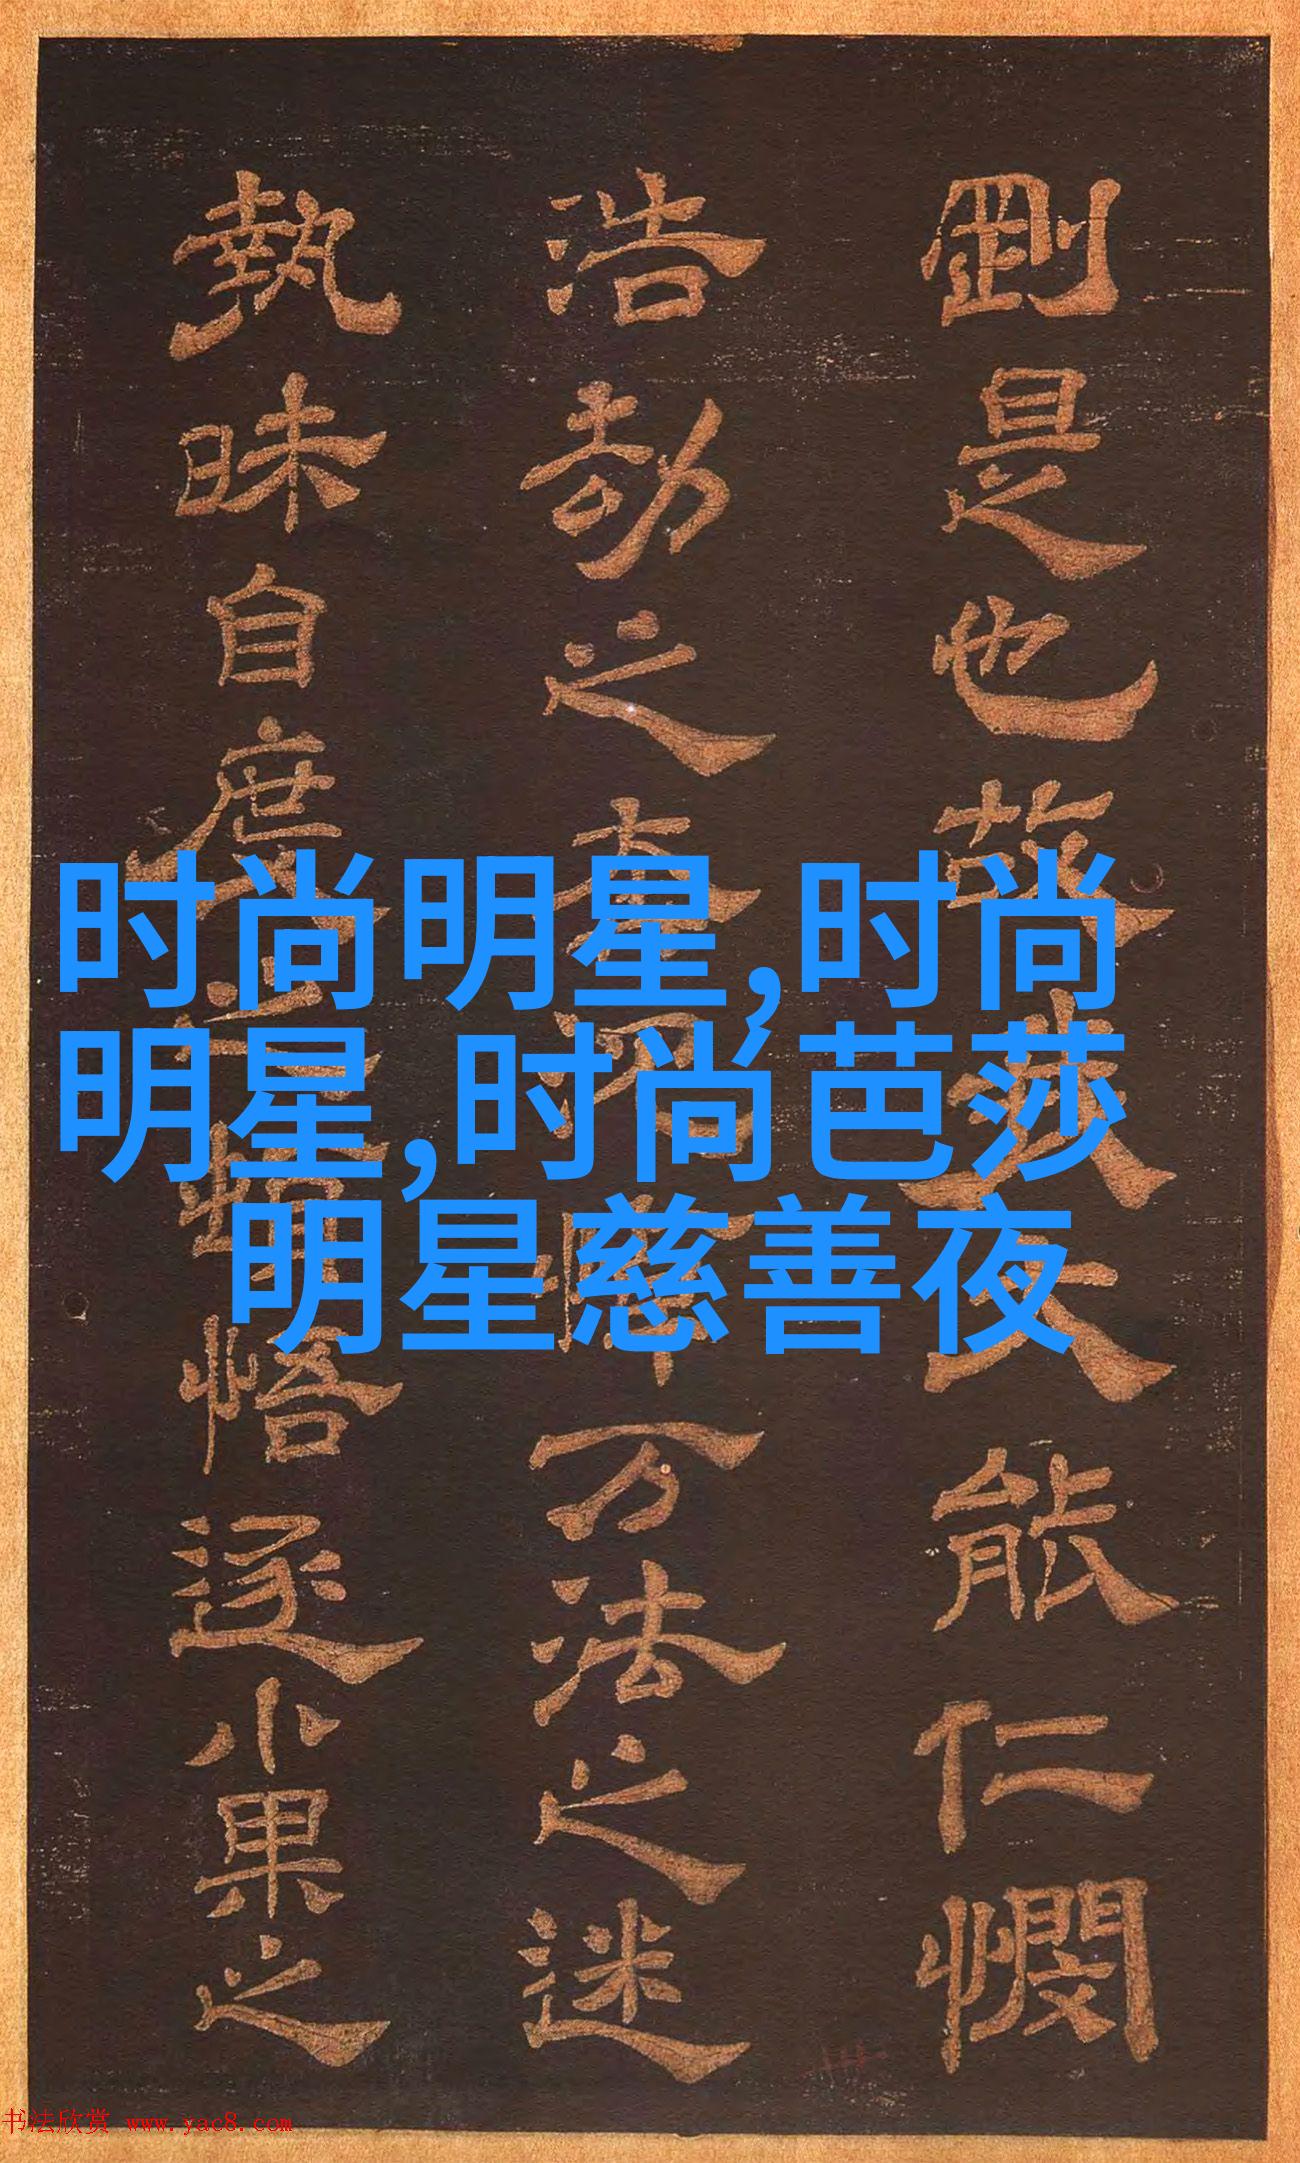 时尚明星,时尚
明星,时尚芭莎
明星慈善夜
劉是也故能仁憫
浩劫之万法之迷
執昧自悟逐小果之
书法欣赏 www.yac8.com